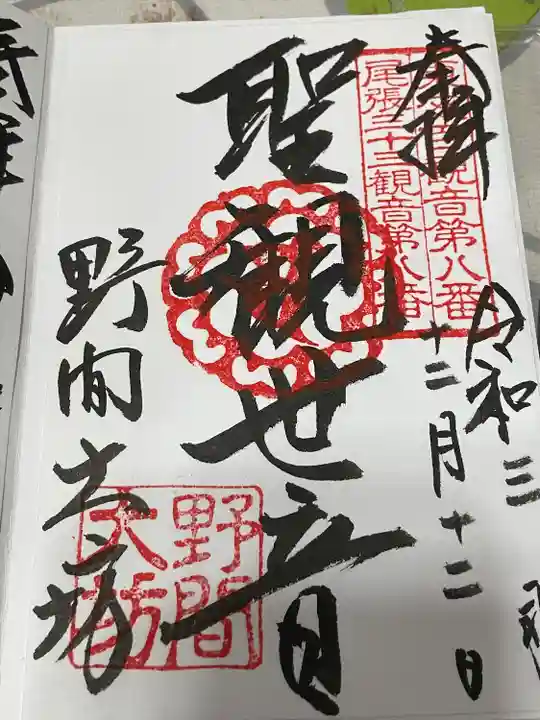 奉拝
観音第八番
尾張三十三観音第八番
令和三
十二月十二日
聖観世音
野間大坊
野間
大坊